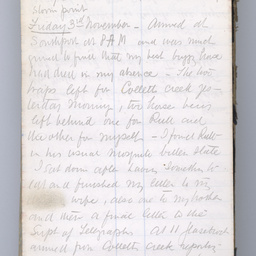 Friday 3rd November - Arrived at
Southport at 8 AM and was much
grieved to find that my best buggy horse
had died in my absence - The two
traps left for Colletts creek yes-
terday morning, two horses being
left behind one for and
the other for myself - I found
in his usual mosquito bitten state
I sat down after having something to
eat and finished my letter to my
wife, also one to my brother
and then a final letter to the
Supt of Telegraphs At 11 Macklock
arrived from Colletts creek reporting